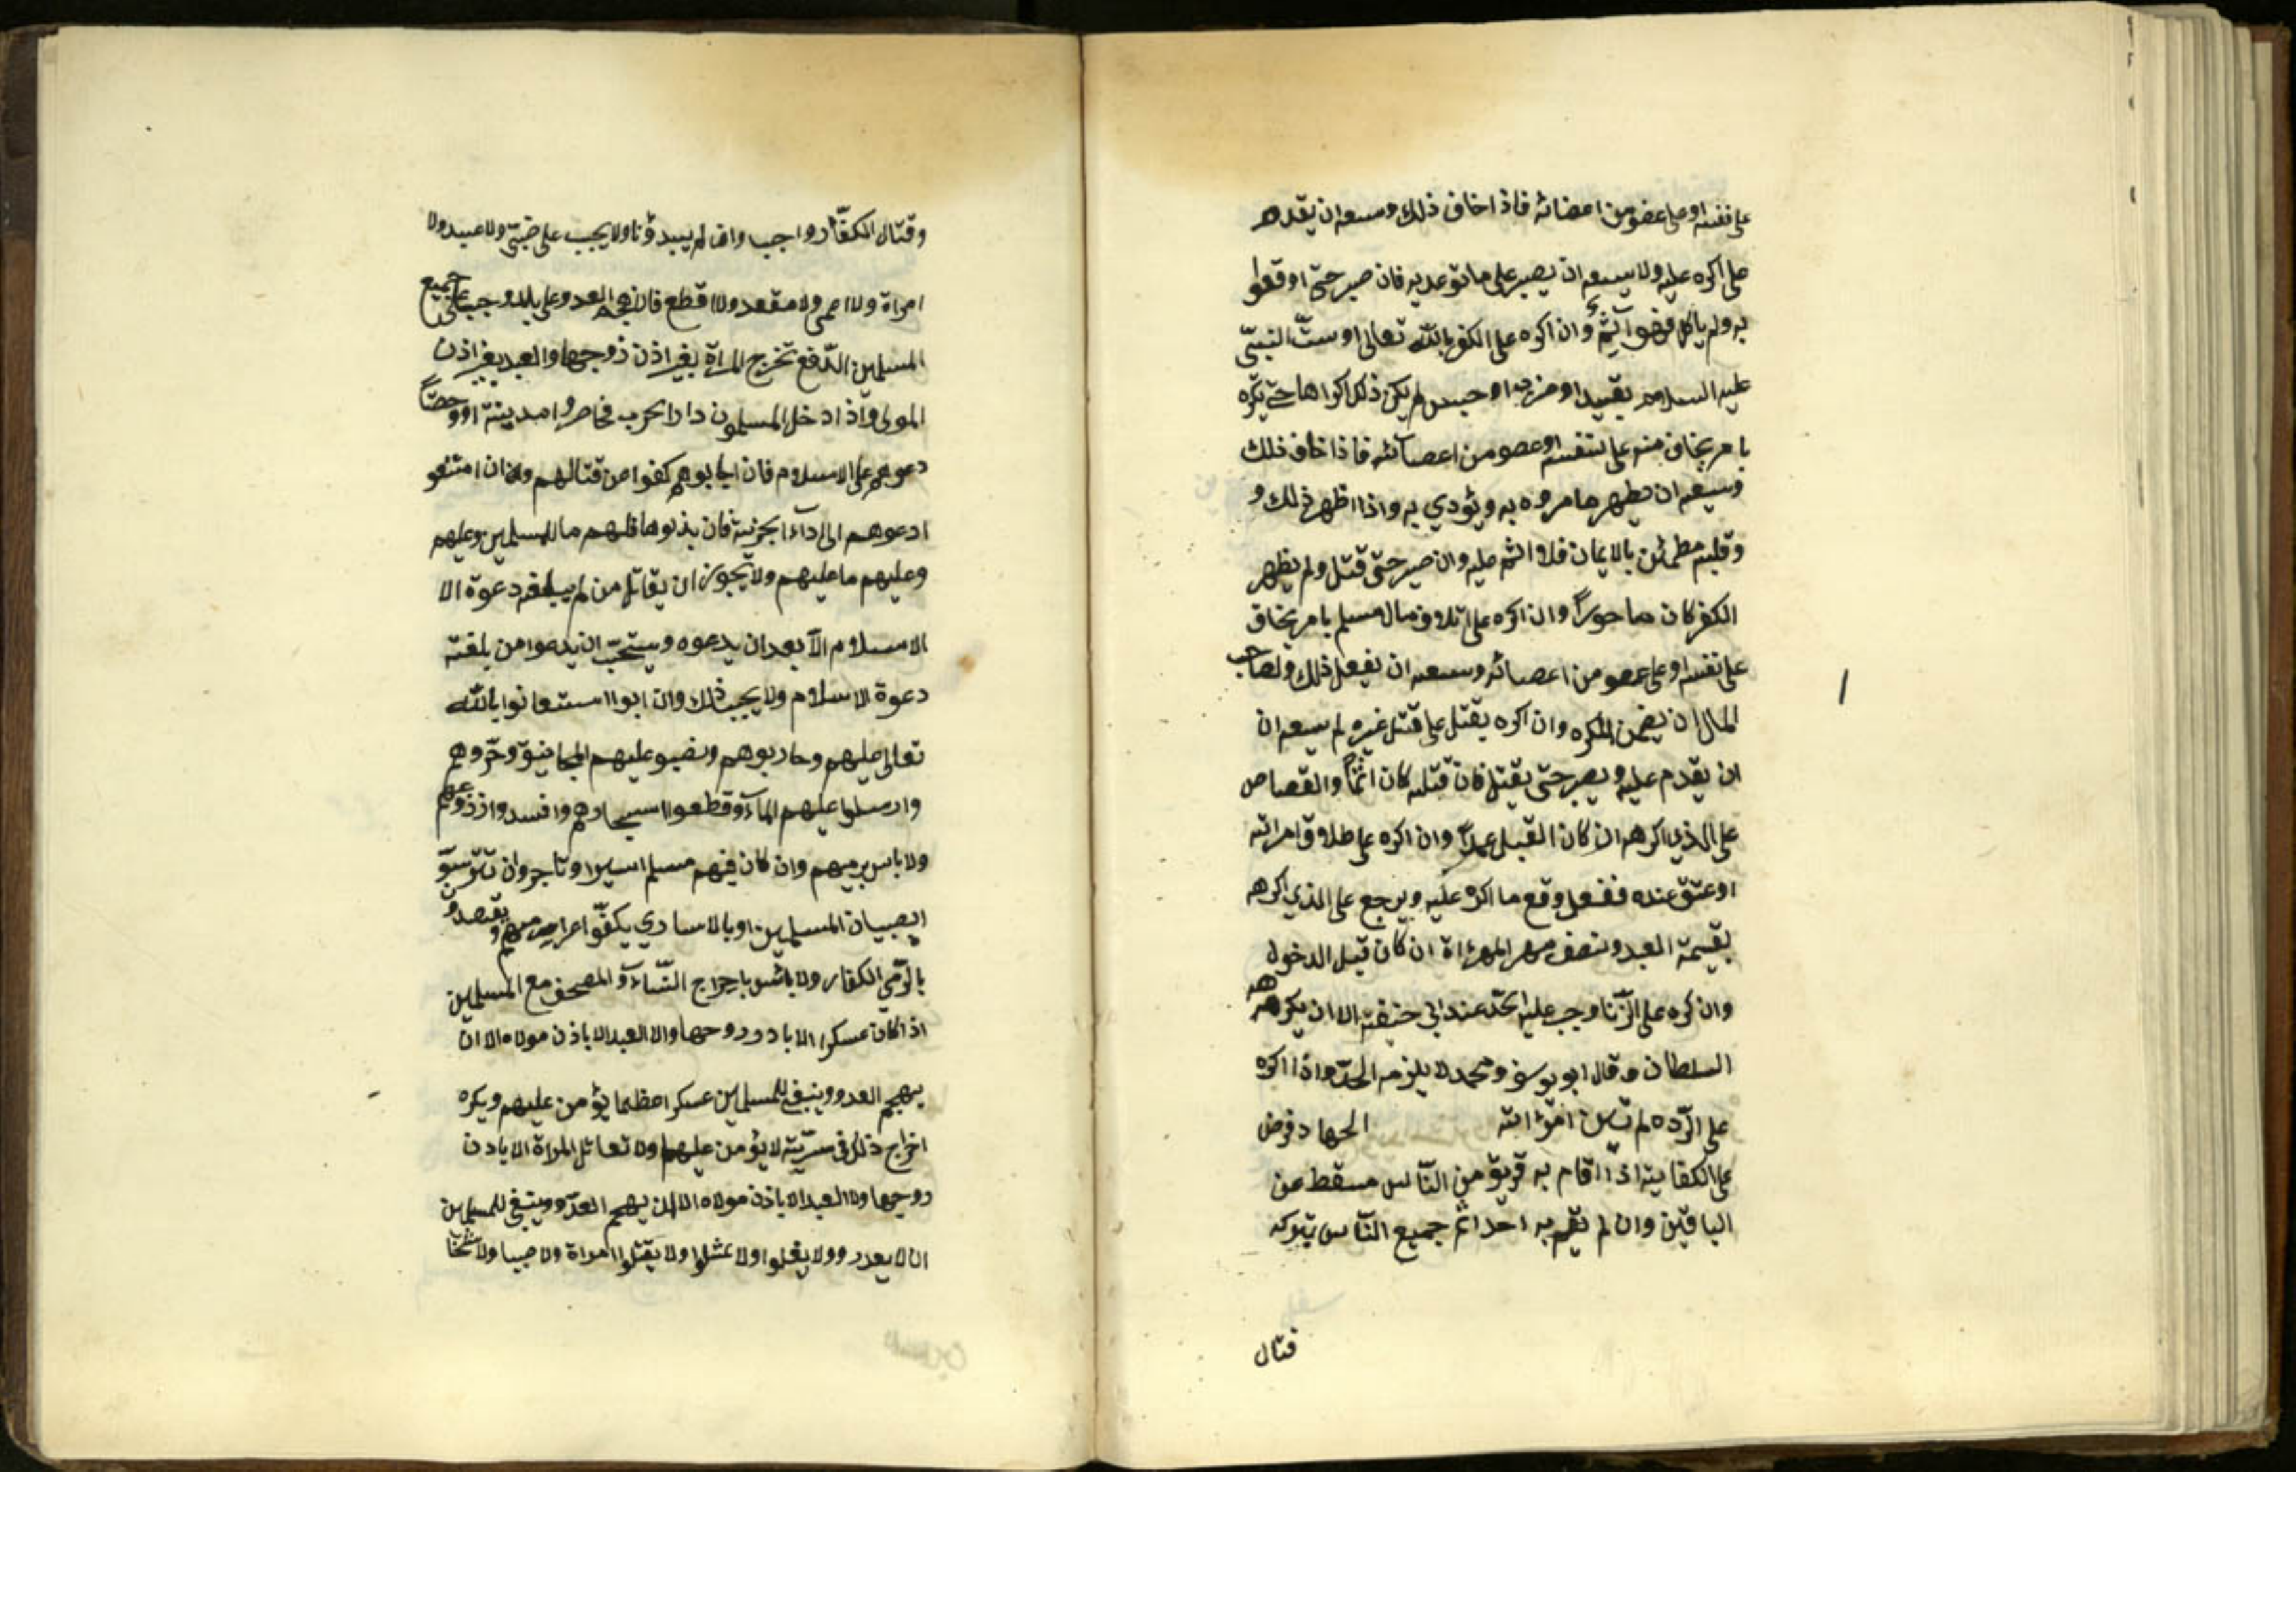 على نفسه او على عضو من اعضائه فاذا خاف ذلك وسعه ان يقدم
على اكره عليه ولا يسعه ان يصبر على ما توعد به فان صبر حتى اوقعوا
به ولم ياكل فهو آثم وان اكره على الكفر بالله تعالى او سب النبي
عليه السلام بقيد او ضرب او حبس لم يكن ذلك اكراها حتى يكره
بامر يخاف منه على نفسه او عضو من اعضائه فاذا خاف ذلك
وسعه ان يظهر ما مروه به ويؤدي به واذا اظهر ذلك و
وقلبه مطمئن بالايمان فلا اثم عليه وان صبر حتى قتل ولم يظهر
الكفر كان ماجورا وان اكره على اتلاف مال مسلم بامر يخاف
على نفسه او على عضو من اعضائه وسعه ان يفعل ذلك ولصاحب
المال ان يضمن المكره وان اكره بقتل على قتل غيره لم يسعه ان
ان يقدم عليه ويصبر حتى يقتل فان قتله كان اثما والقصاص
على الذي اكرهه ان كان القتيل عمدا وان اكره على طلاق امراته
او عتق عنده ففعل وقع ما اكره عليه ويرجع على الذي اكرهه
بقيمة العبد ونصف مهر المراة ان كان قبل الدخول
وان كره على الزنا وجب عليه الحد عند ابي حنيفة الا ان يكرهه
السلطان وقال ابو يوسف ومحمد لا يلزمه الحد واذا اكره
على الرده لم تبن امراته الجهاد فرض
على الكفاية اذا اقام به فريق من الناس سقط عن
الباقين وان لم يقم به احد اثم جميع الناس بتركه
قتال
وقتال الكفار واجب وان لم يبدؤنا ولا يجب على صبي ولا عبد ولا
امراة ولا اعمى ولا مقعد ولا اقطع فان هجم العدو على بلد وجب على جميع
المسلمين الدفع تخرج المراة بغير اذن زوجها والعبد بغير اذن
المولى واذا دخل المسلمون دار الحرب فحاصروا مدينة او حصنا
دعوهم على الاسلام فان اجابوهم كفوا من قتالهم وان امتنعو
ادعوهم الى اداء الجزية فان بذلوها فلهم ما للمسلمين وعليهم
وعليهم ما عليهم ولا يجوز ان يقاتل من لم يبلغه دعوة الا
الاسلام الا بعد ان يدعوه ويستحب ان يدعوا من بلغته
دعوة الاسلام ولا يجب ذلك وان ابوا استعانوا بالله
تعالى عليهم وحاربوهم ونصبو عليهم المجانيق وحرقوهم
وارسلوا عليهم الماء وقطعوا اشجارهم وافسدوا زروعهم
ولا باس برميهم وان كان فيهم مسلم اسير او تاجر وان تترسو
بصبيان المسلمين او بالاسارى يكفوا عن رميهم ويقصدون
بالرمي الكفار ولا باس باخراج النساء والمصحف مع المسلمين
اذا كان عسكرا الا باذن زوجها والا العبد الا باذن مولاه الا ان
يهجم العدو وينبغي للمسلمين عسكرا عظيما يؤمن عليهم ويكره
اخراج ذلك في سرية لا يؤمن عليهم ولا تقاتل المراة الا باذن
زوجها ولا العبد الا باذن مولاه الا ان يهجم العدو وينبغي للمسلمين
ان لا يغدروا ولا يغلوا ولا يمثلوا ولا يقتلوا امراة ولا صبيا ولا شيخا